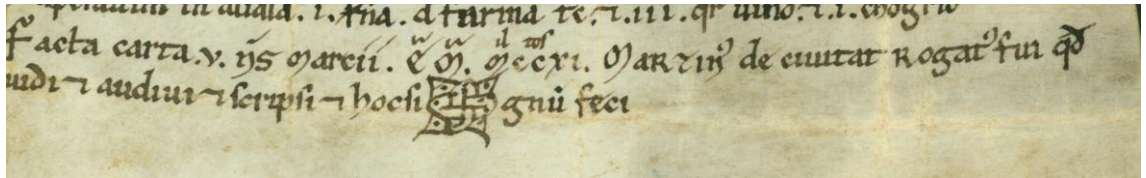 in auaia . i . fña . đ farina tc̄ . ⁊ . iii . qr̄ uino . ⁊ . i .
Facta carta . v . ñs marcii . ē m̄ . m̄ccxi . Martinꝰ de ciuitat Rogatꝰ fui qđ
uidi ⁊ audiui ⁊ scripsi ⁊ hoc si gnū feci